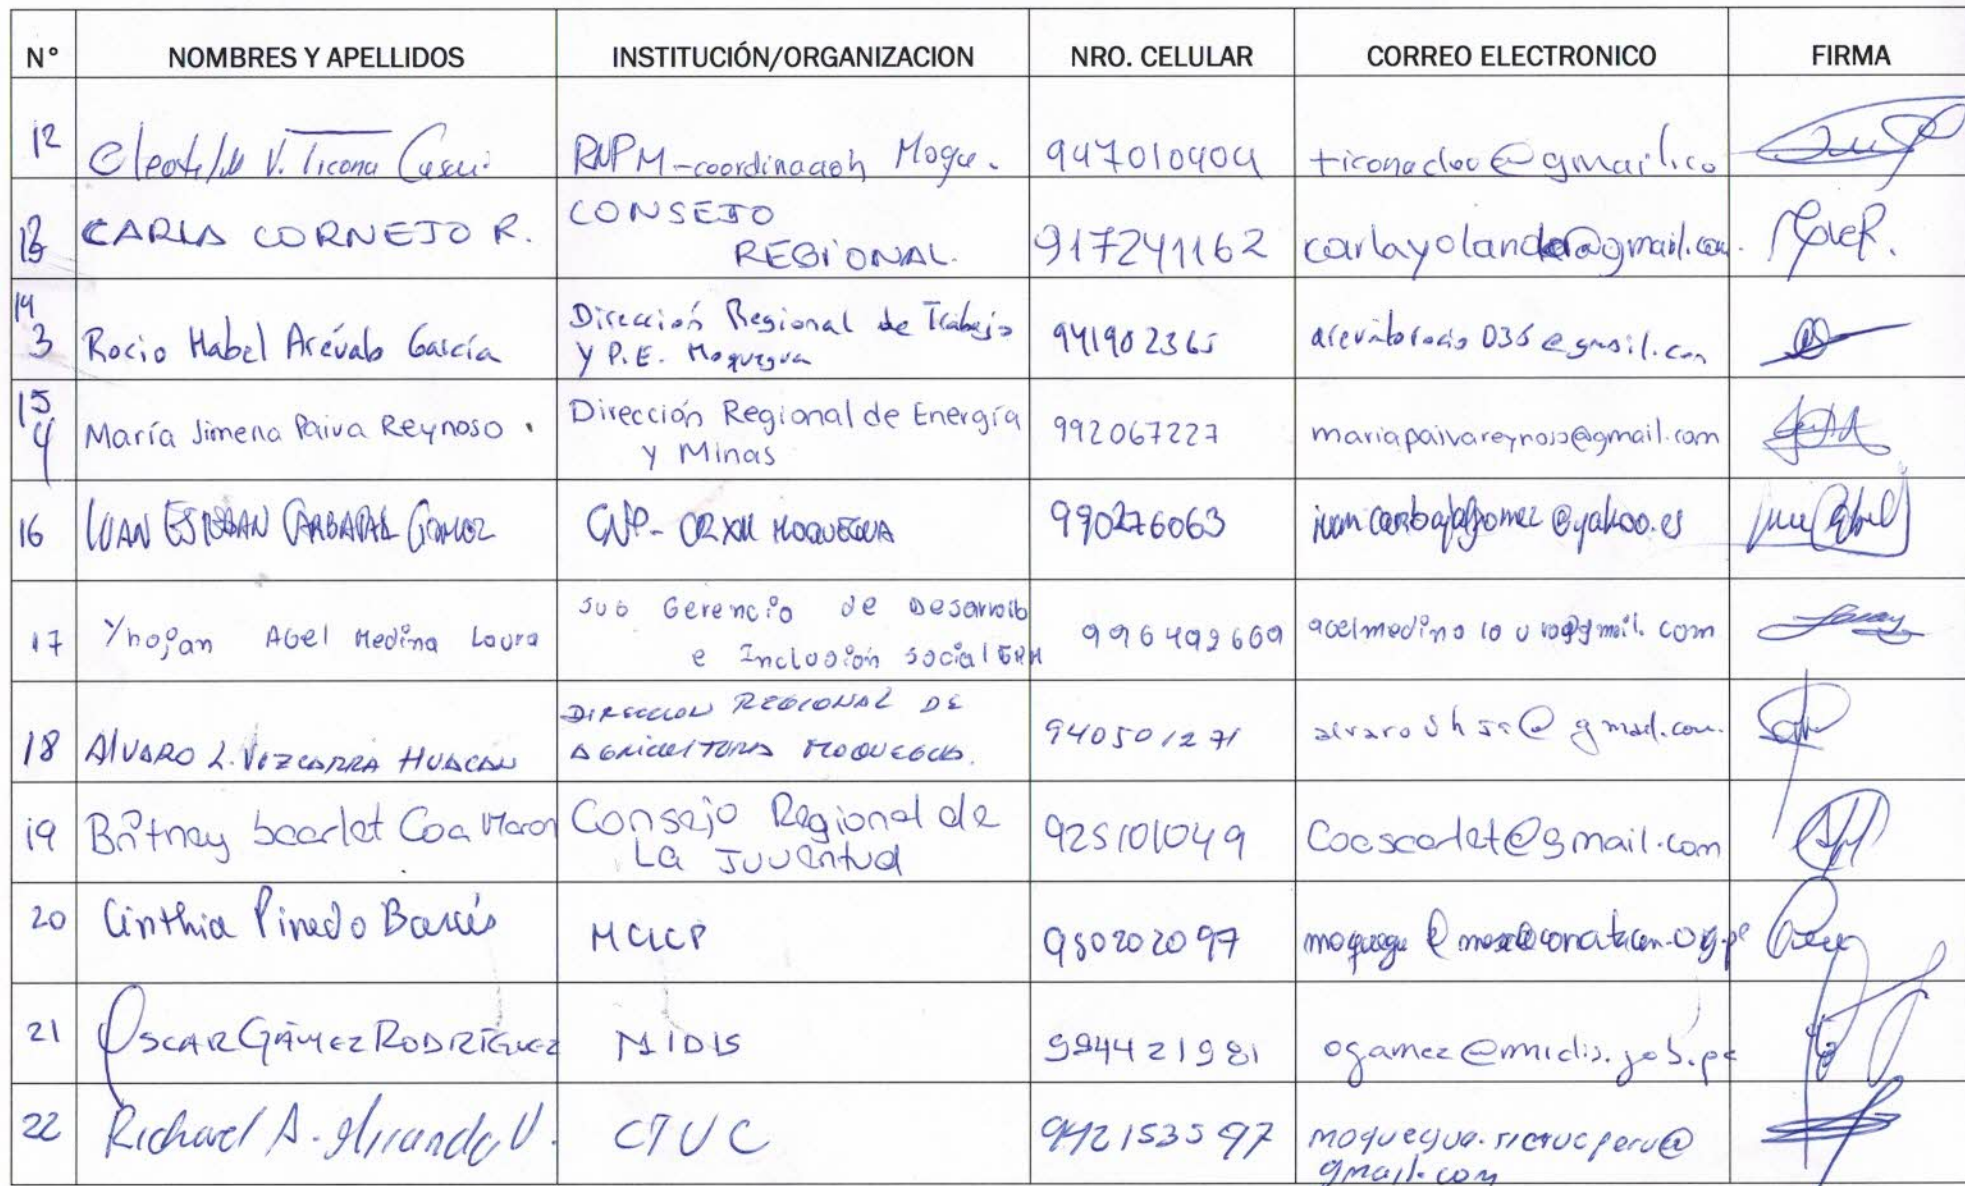 N° NOMBRES Y APELLIDOS INSTITUCIÓN/ORGANIZACION NRO. CELULAR CORREO ELECTRONICO FIRMA
12 V. Ticona RNPM-coordinación Moque. 947010404 ticonacleo@gmail.co
13 CARLA CORNEJO R. CONSEJO REGIONAL. 917241162 carlayolanda@gmail.com.
14 3 Rocio Mabel Arévalo García Dirección Regional de Trabajo y P.E. Moquegua 941902365 @gmail.com
15 4 María Jimena Paiva Reynoso. Dirección Regional de Energía y Minas 992067227 mariapaivareynoso@gmail.com
16 ESTEBAN CARBAJAL GOMEZ MOQUEGUA 990276063 @yahoo.es
17 Yhojan Abel Medina Laura Sub Gerencia de Desarrollo e Inclusión social GRM
18 ALVARO L. VIZCARRA HUACAN DIRECCION REGIONAL DE AGRICULTURA MOQUEGUA. 940501271
19 Britney Scarlet Coa Consejo Regional de La Juventud 925101049 Coascarlet@gmail.com
20 Cinthia Pinedo MCLCP
21 OSCAR GÁMEZ RODRÍGUEZ MIDIS 994421981 ogamez@midis.gob.pe
22 Richard A. Miranda V. CTUC 942153597 gmail.com